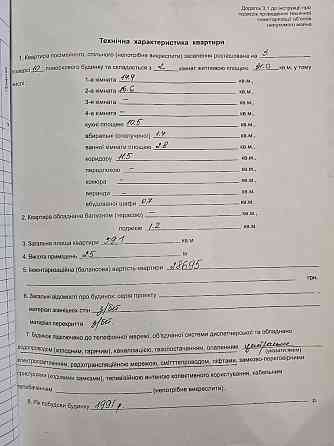 Додаток 3.1 до Інструкції про
порядок проведення технічної
інвентаризації об'єктів
нерухомого майна
Технічна характеристика квартири
1. Квартира посімейного, спільного (непотрібне викреслити) заселення розташована на 3
поверсі 10 поверхового будинку та складається з 2 кімнат житловою площею кв.м, у тому
числі
1-а кімната 14.4 кв.м.,
2-а кімната 16.6 кв.м.,
3-я кімната – кв.м.,
4-а кімната – кв.м.,
кухні площею 10.5 кв.м.,
вбиральні (сполученої) 1.4 кв.м.,
ванної кімнати площею 2.8 кв.м.,
коридору 11.5 кв.м.,
передпокою – кв.м.,
комора – кв.м.,
веранди – кв.м.,
вбудованої шафи 0.7 кв.м.
2. Квартира обладнана балконом (терасою) кв.м.,
лоджією 1.2 кв.м.
3. Загальна площа квартири 59.1 кв.м
4. Висота приміщень 2.5 м
5. Інвентаризаційна (балансова) вартість квартири 28695
грн.
6. Загальні відомості про будинок: серія проекту
матеріал зовнішніх стін з/бет
матеріал перекриття з/бет
7. Будинок підключено до телефонної мережі, об'єднаної системи диспетчеризації та обладнано
водопроводом (холодним, гарячим), каналізацією, газопостачанням, опаленням
(указати яким)
електроопаленням, радіотрансляційною мережею, сміттєпроводом, ліфтами, замково-переговорними
пристроями (кодовими замками), телевізійною антеною колективного користування, кабельним
телебаченням (непотрібне викреслити).
8. Рік побудови будинку 1991 р.